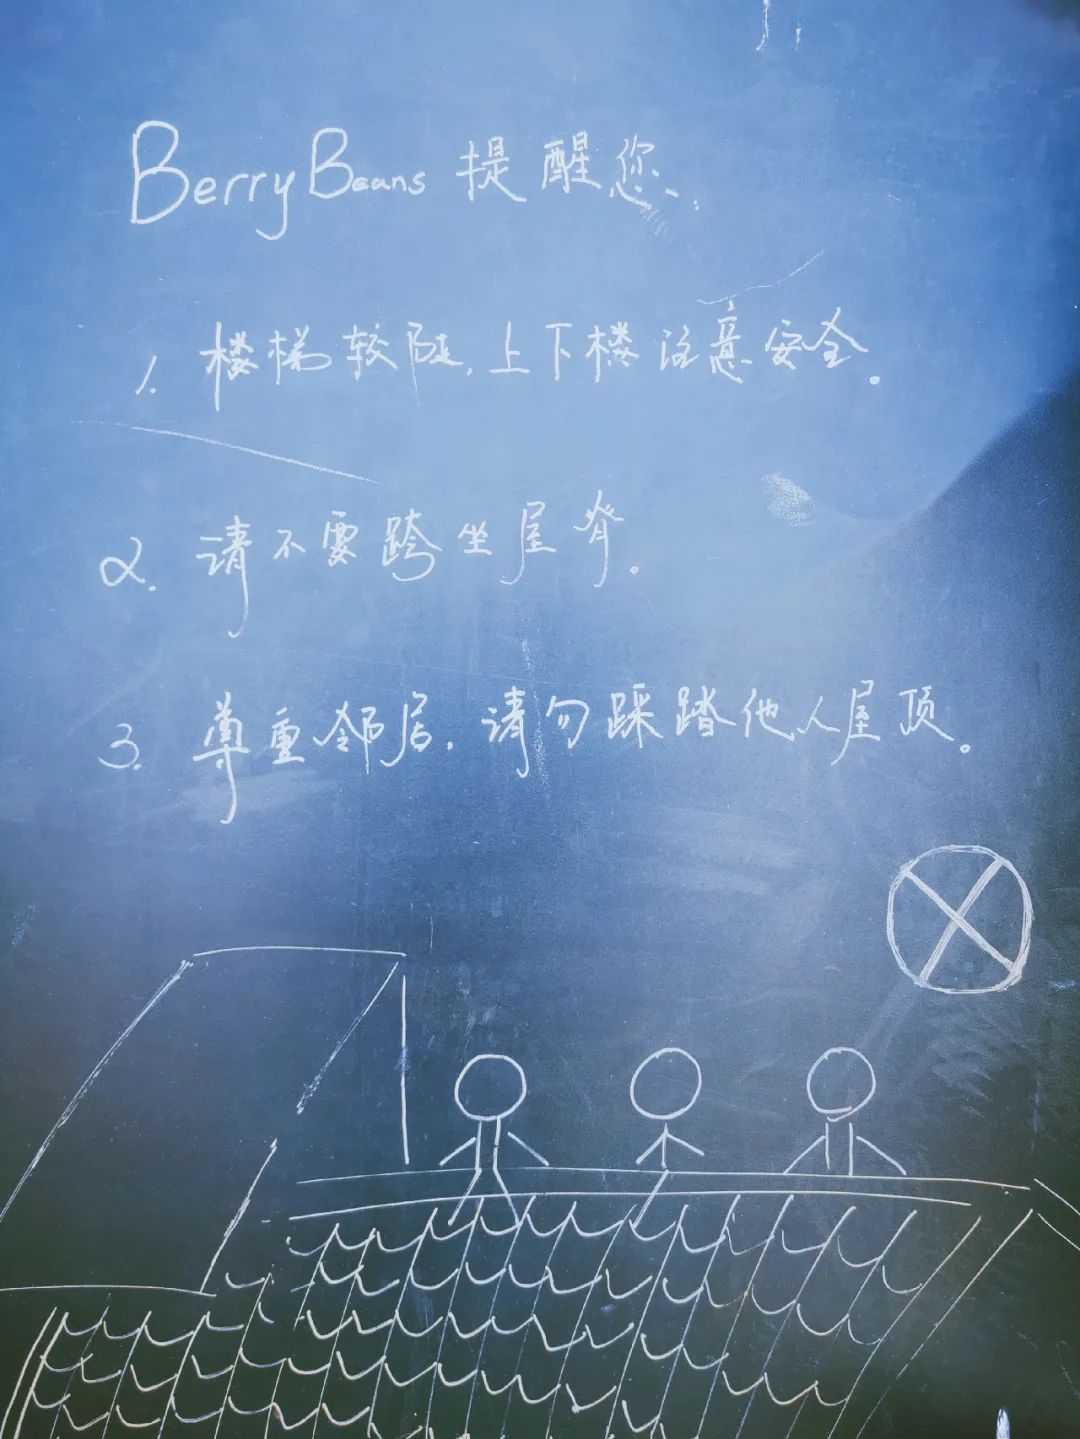 Berry Beans 提醒您:
1. 楼梯较陡,上下楼注意安全。
2. 请不要跨坐屋脊。
3. 尊重邻居,请勿踩踏他人屋顶。